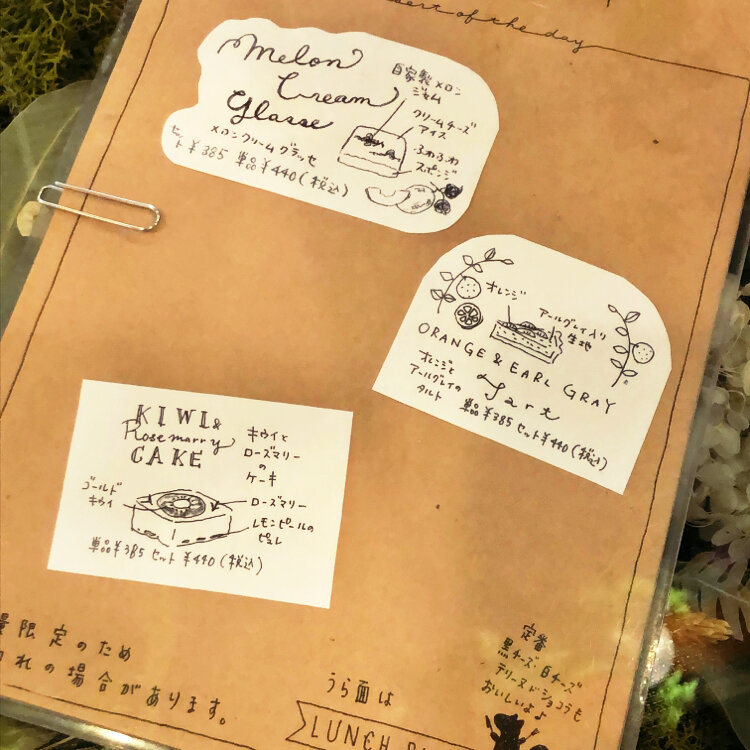 of the day
Melon
Cream
Glasse
自家製メロン
ジャム
クリームチーズ
アイス
ふわふわ
スポンジ
メロンクリームグラッセ
セット¥385 単品¥440(税込)
オレンジ
アールグレイ入り
生地
ORANGE & EARL GRAY
tart
オレンジと
アールグレイの
タルト
単品¥385 セット¥440(税込)
KIWI &
Rosemarry
CAKE
キウイと
ローズマリー
の
ケーキ
ゴールド
キウイ
ローズマリー
レモンピールの
ピュレ
単品¥385 セット¥440(税込)
量限定のため
れの場合があります。
うら面は
LUNCH
定番
黒チーズ・白チーズ
テリーヌドショコラも
おいしいよ♪